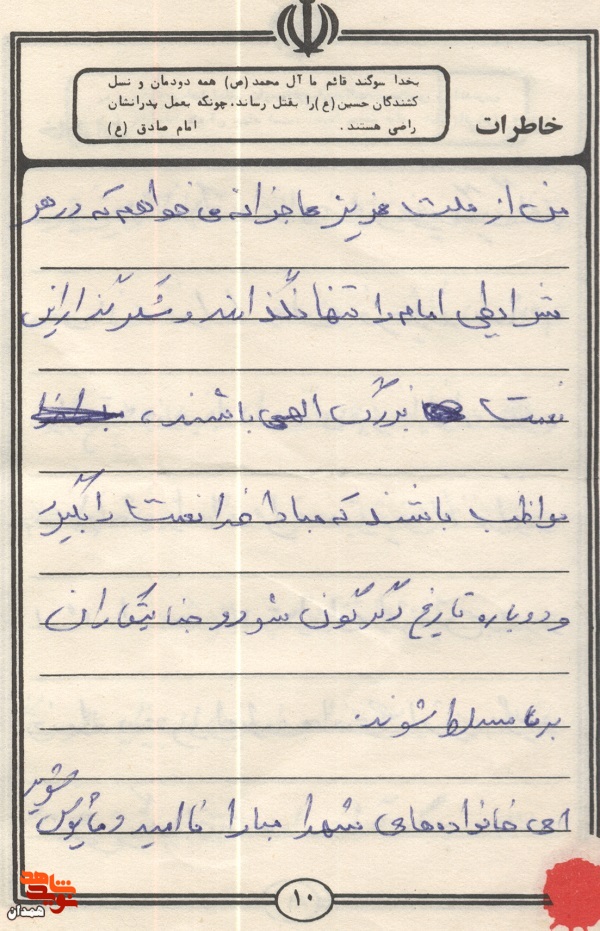 بخدا سوگند قائم ما آل محمد (ص) همه دودمان و نسل
کشندگان حسین (ع) را بقتل رساند، چونکه بعمل پدرانشان
راضی هستند. امام صادق (ع)
خاطرات
من از ملت عزیز عاجزانه می خواهم که در هر
شرایطی امام را تنها نگذارند و شکرگذار این
نعمت بزرگ الهی باشند،
مواظب باشند که مبادا خدا نعمت را بگیرد
و دوباره تاریخ دگرگون شود و جنایتکاران
بر ما مسلط شوند.
ای خانواده های شهدا مبادا ناامید و مأیوس شوید
۱۰
شاهد
نوید
همدان